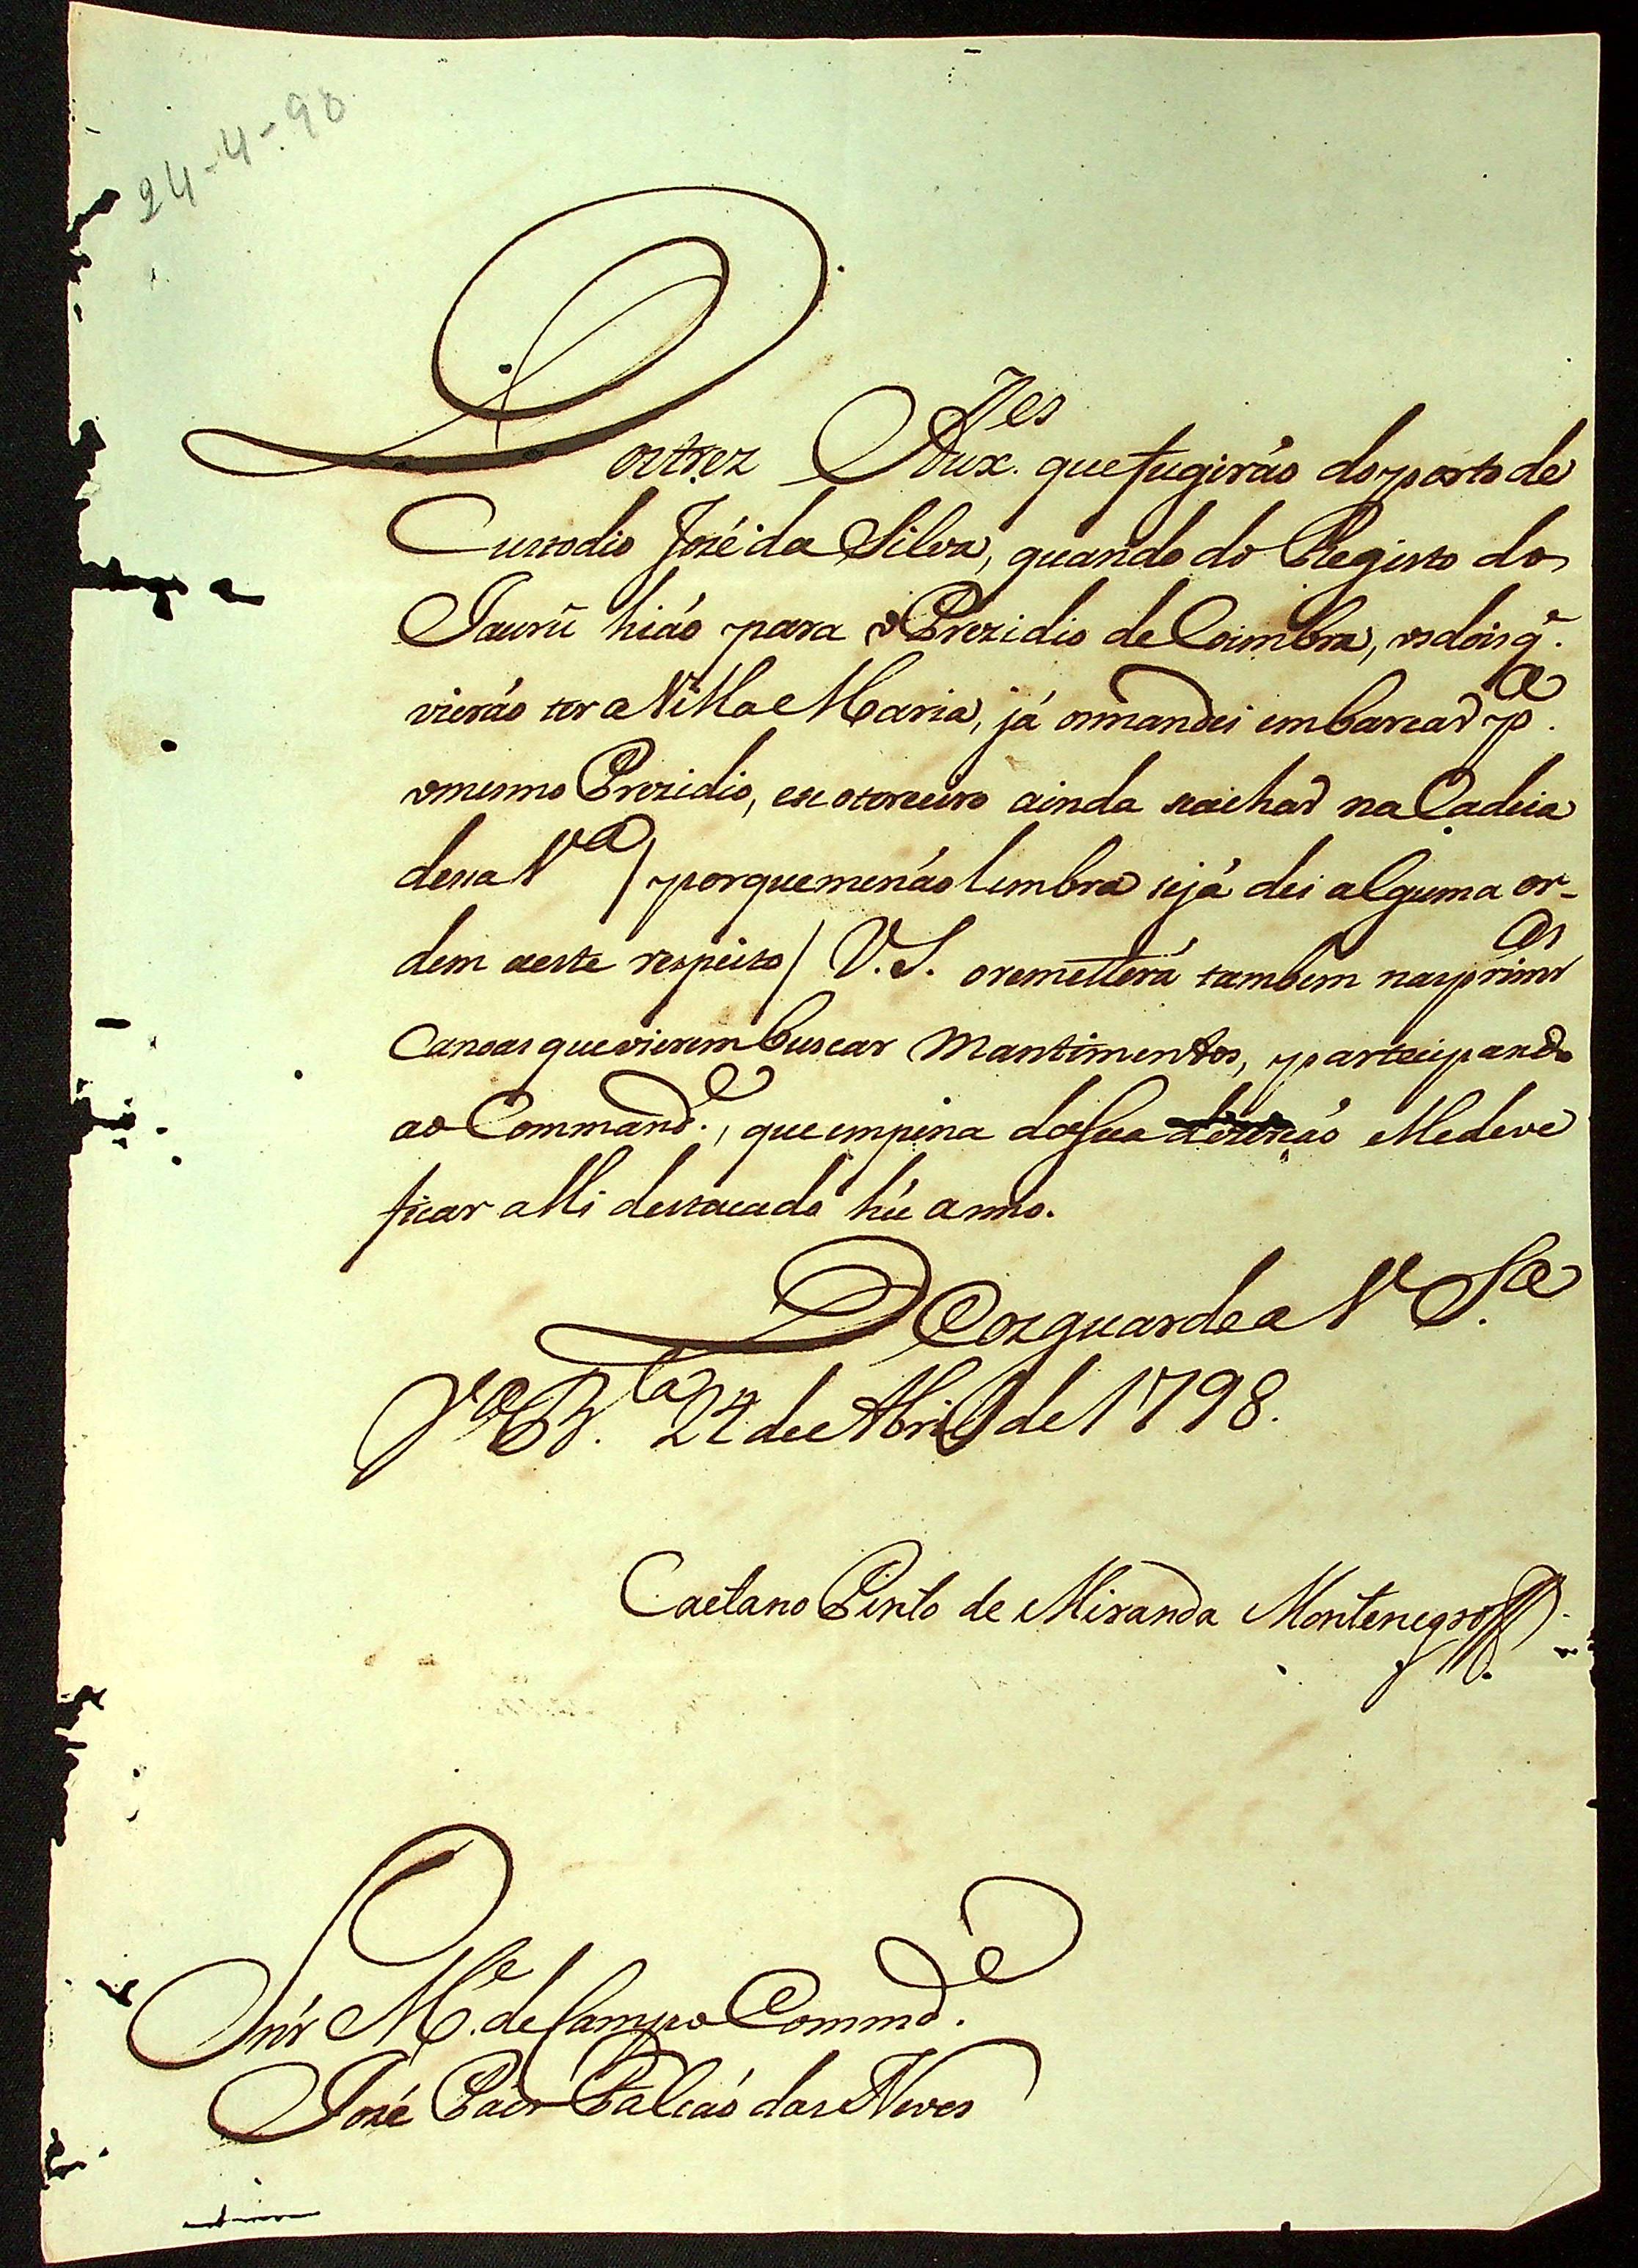 24-4-98
Dos trez Aux.res que fugiraõ do porto de
Custodio José da Silva, quando do Registo do
Jaurú hiaõ para o Prezidio de Coimbra, os dois q̃.
vieraõ ter a Villa Maria, já os mandei embarcar p.a
o mesmo Prezidio, e se o terceiro ainda se achar na Cadeia
dessa V.a / porque me naõ lembra se já dei alguma or-
dem a este respeito / V. S. o remetterá tambem nas prim.as
Canoas que vierem buscar mantimentos, participando
ao Command.e, que em pena da sua dezerçaõ elle deve
ficar alli destacado hũ anno.
Deos guarde a V S.a
V.a B.la 24 de Abril de 1798.
Caetano Pinto de Miranda Montenegro
Snr̃ M.e de Campo Commd.e
José Paes Falcaõ das Neves